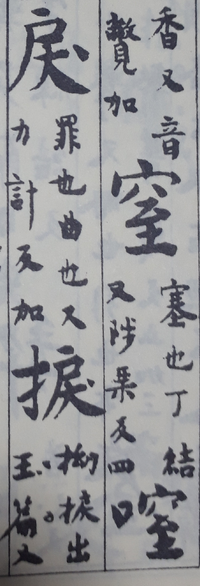 香又音
加
窒
塞也丁結
又陟栗反四
戾
罪也曲也又
力計反加
捩
拗捩出
玉篇又